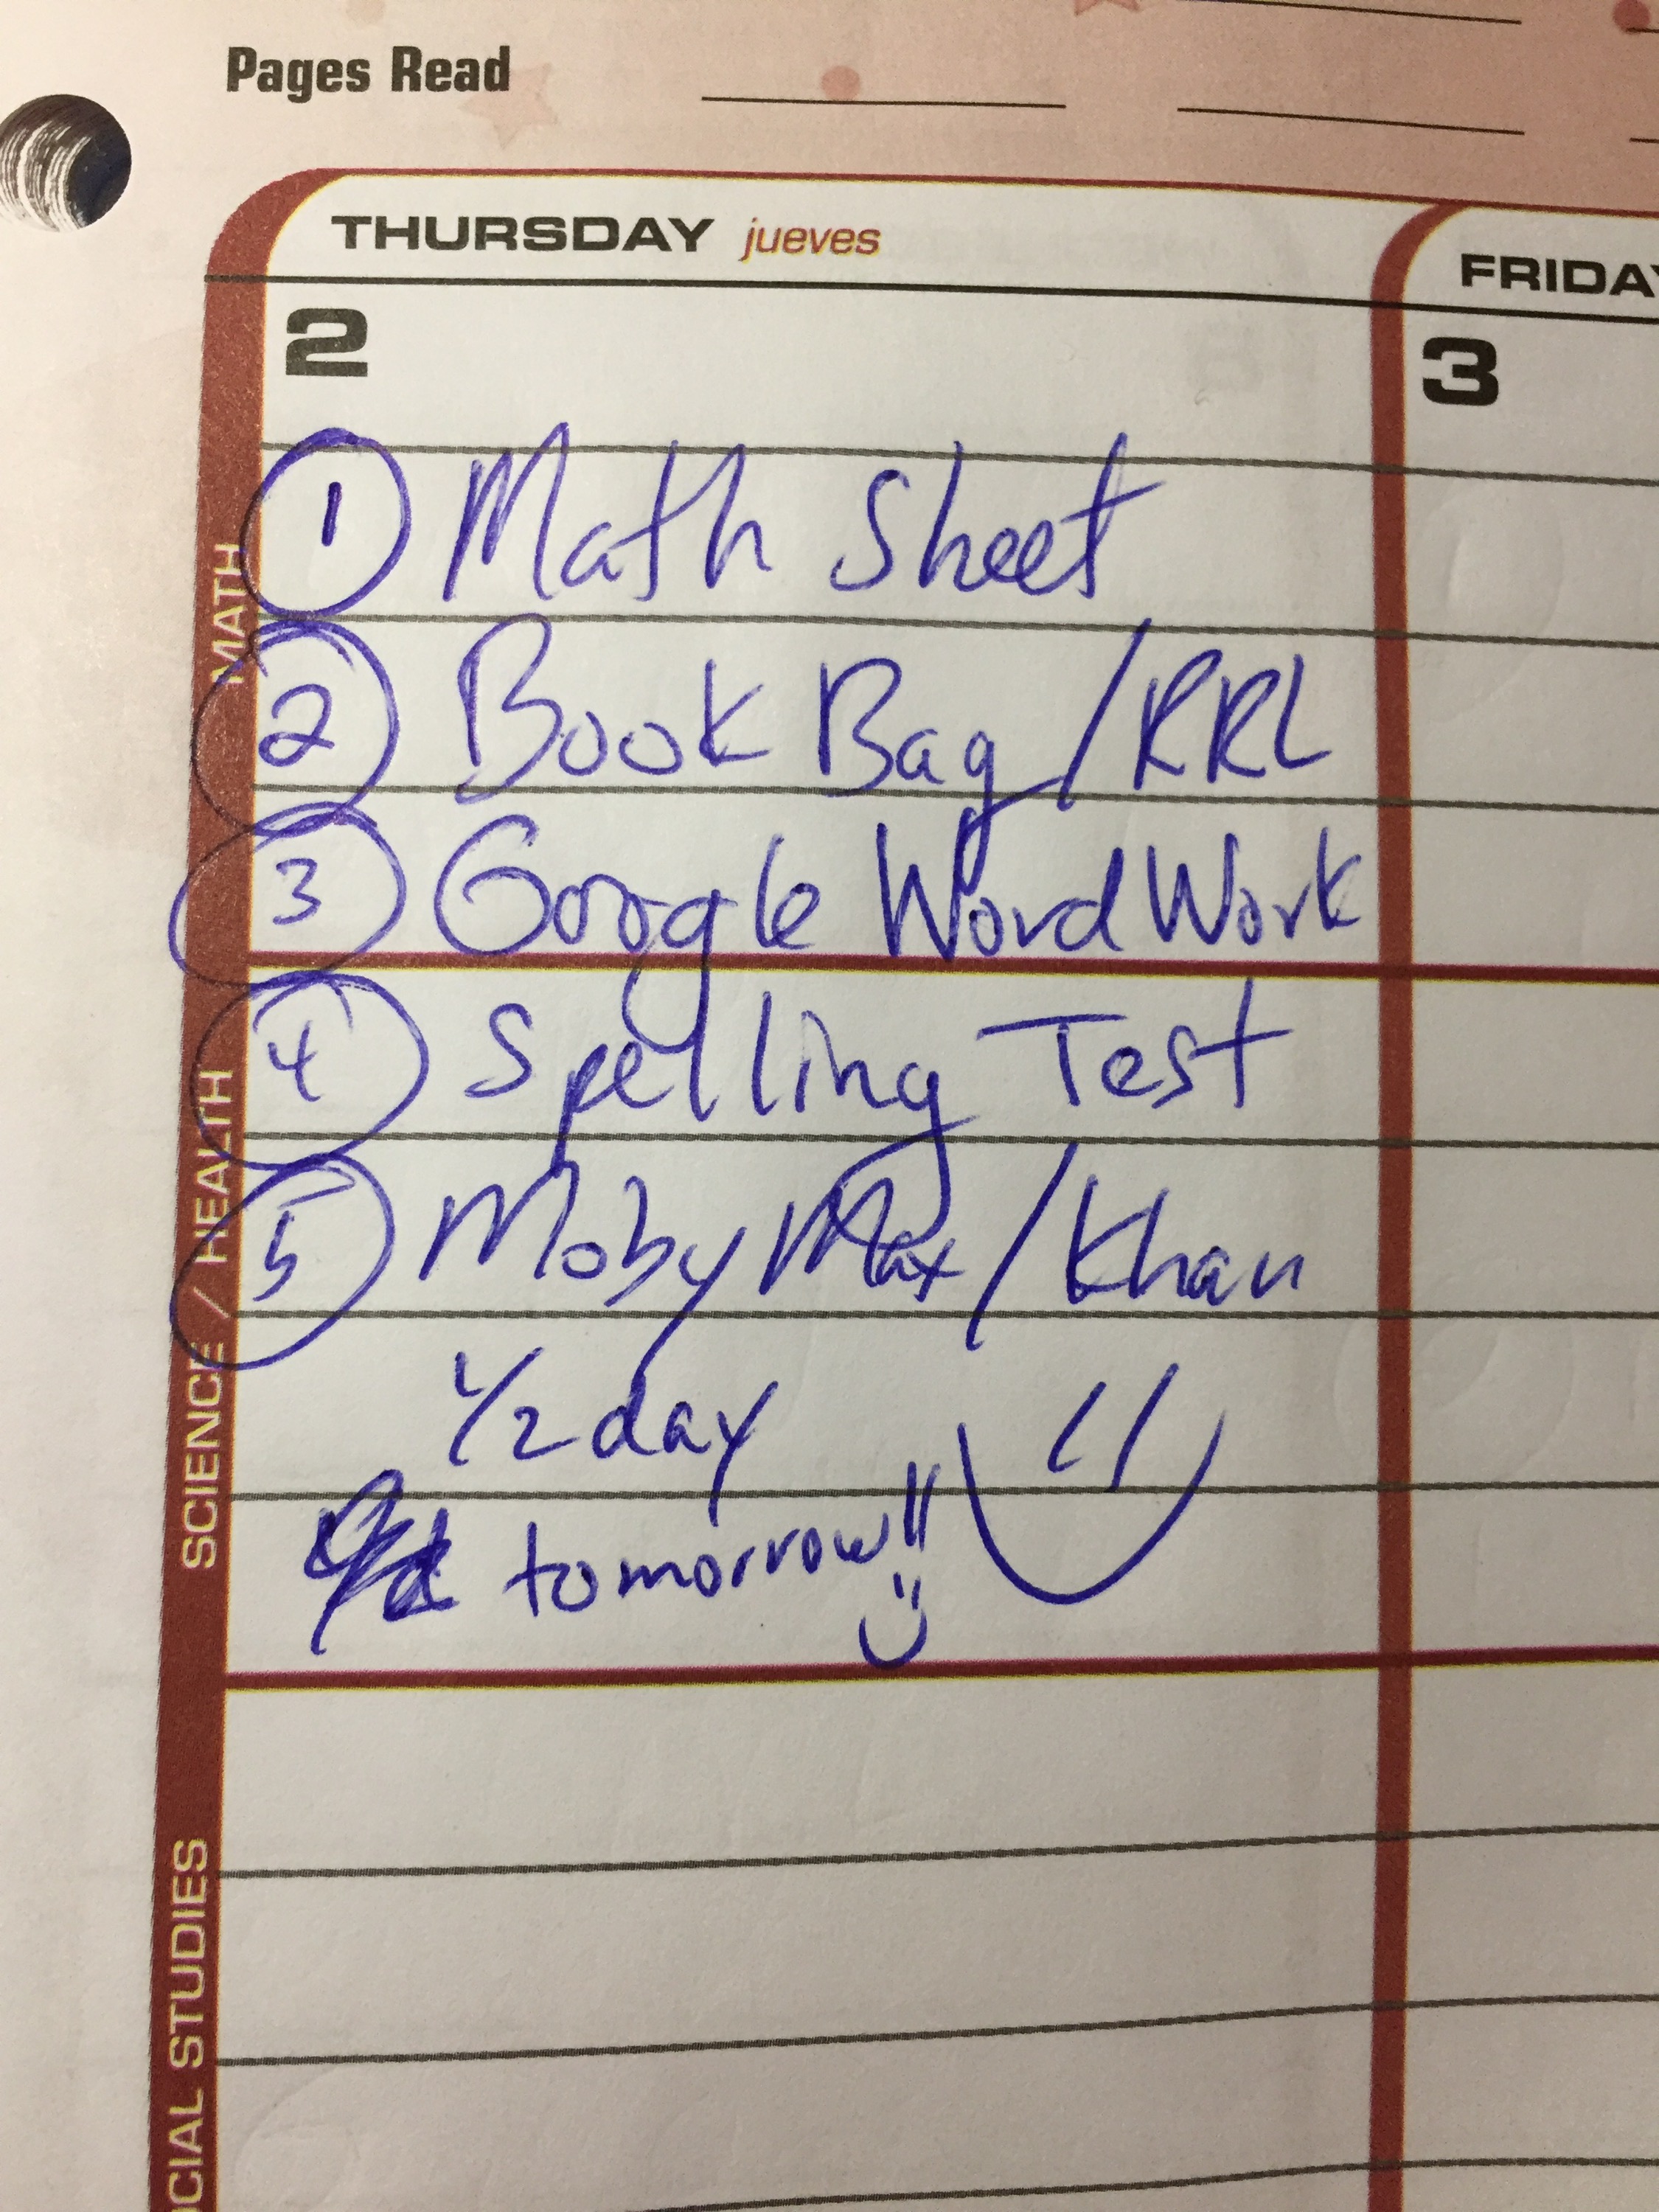 Pages Read
THURSDAY jueves
FRIDAY
2
3
MATH
1 Math Sheet
2 Book Bag/RRL
3 Google Word Work
SCIENCE / HEALTH
4 Spelling Test
5 Moby Max/Khan
1/2 day
tomorrow!!
SOCIAL STUDIES